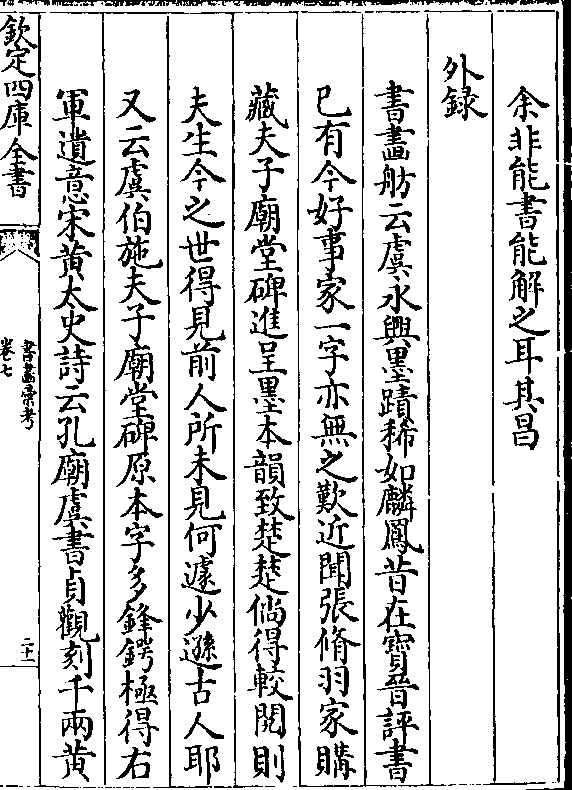 余非能書能解之耳其昌
外録
書畵舫云虞永興墨蹟稀如麟鳳昔在寳晉評書
已有今好事家一字亦無之歎近聞張脩羽家購
藏夫子廟堂碑進呈墨本韻致楚楚倘得較閱則
夫生今之世得見前人所未見何遽少遜古人耶
又云虞伯施夫子廟堂碑原本字多鋒鍔極得右
軍遺意宋黄太史詩云孔廟虞書貞觀刻千兩黄
欽定四庫全書
書畵彚考
卷七
二十一